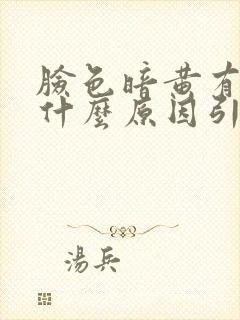 臉色暗黃有
什麼原因引
湯兵